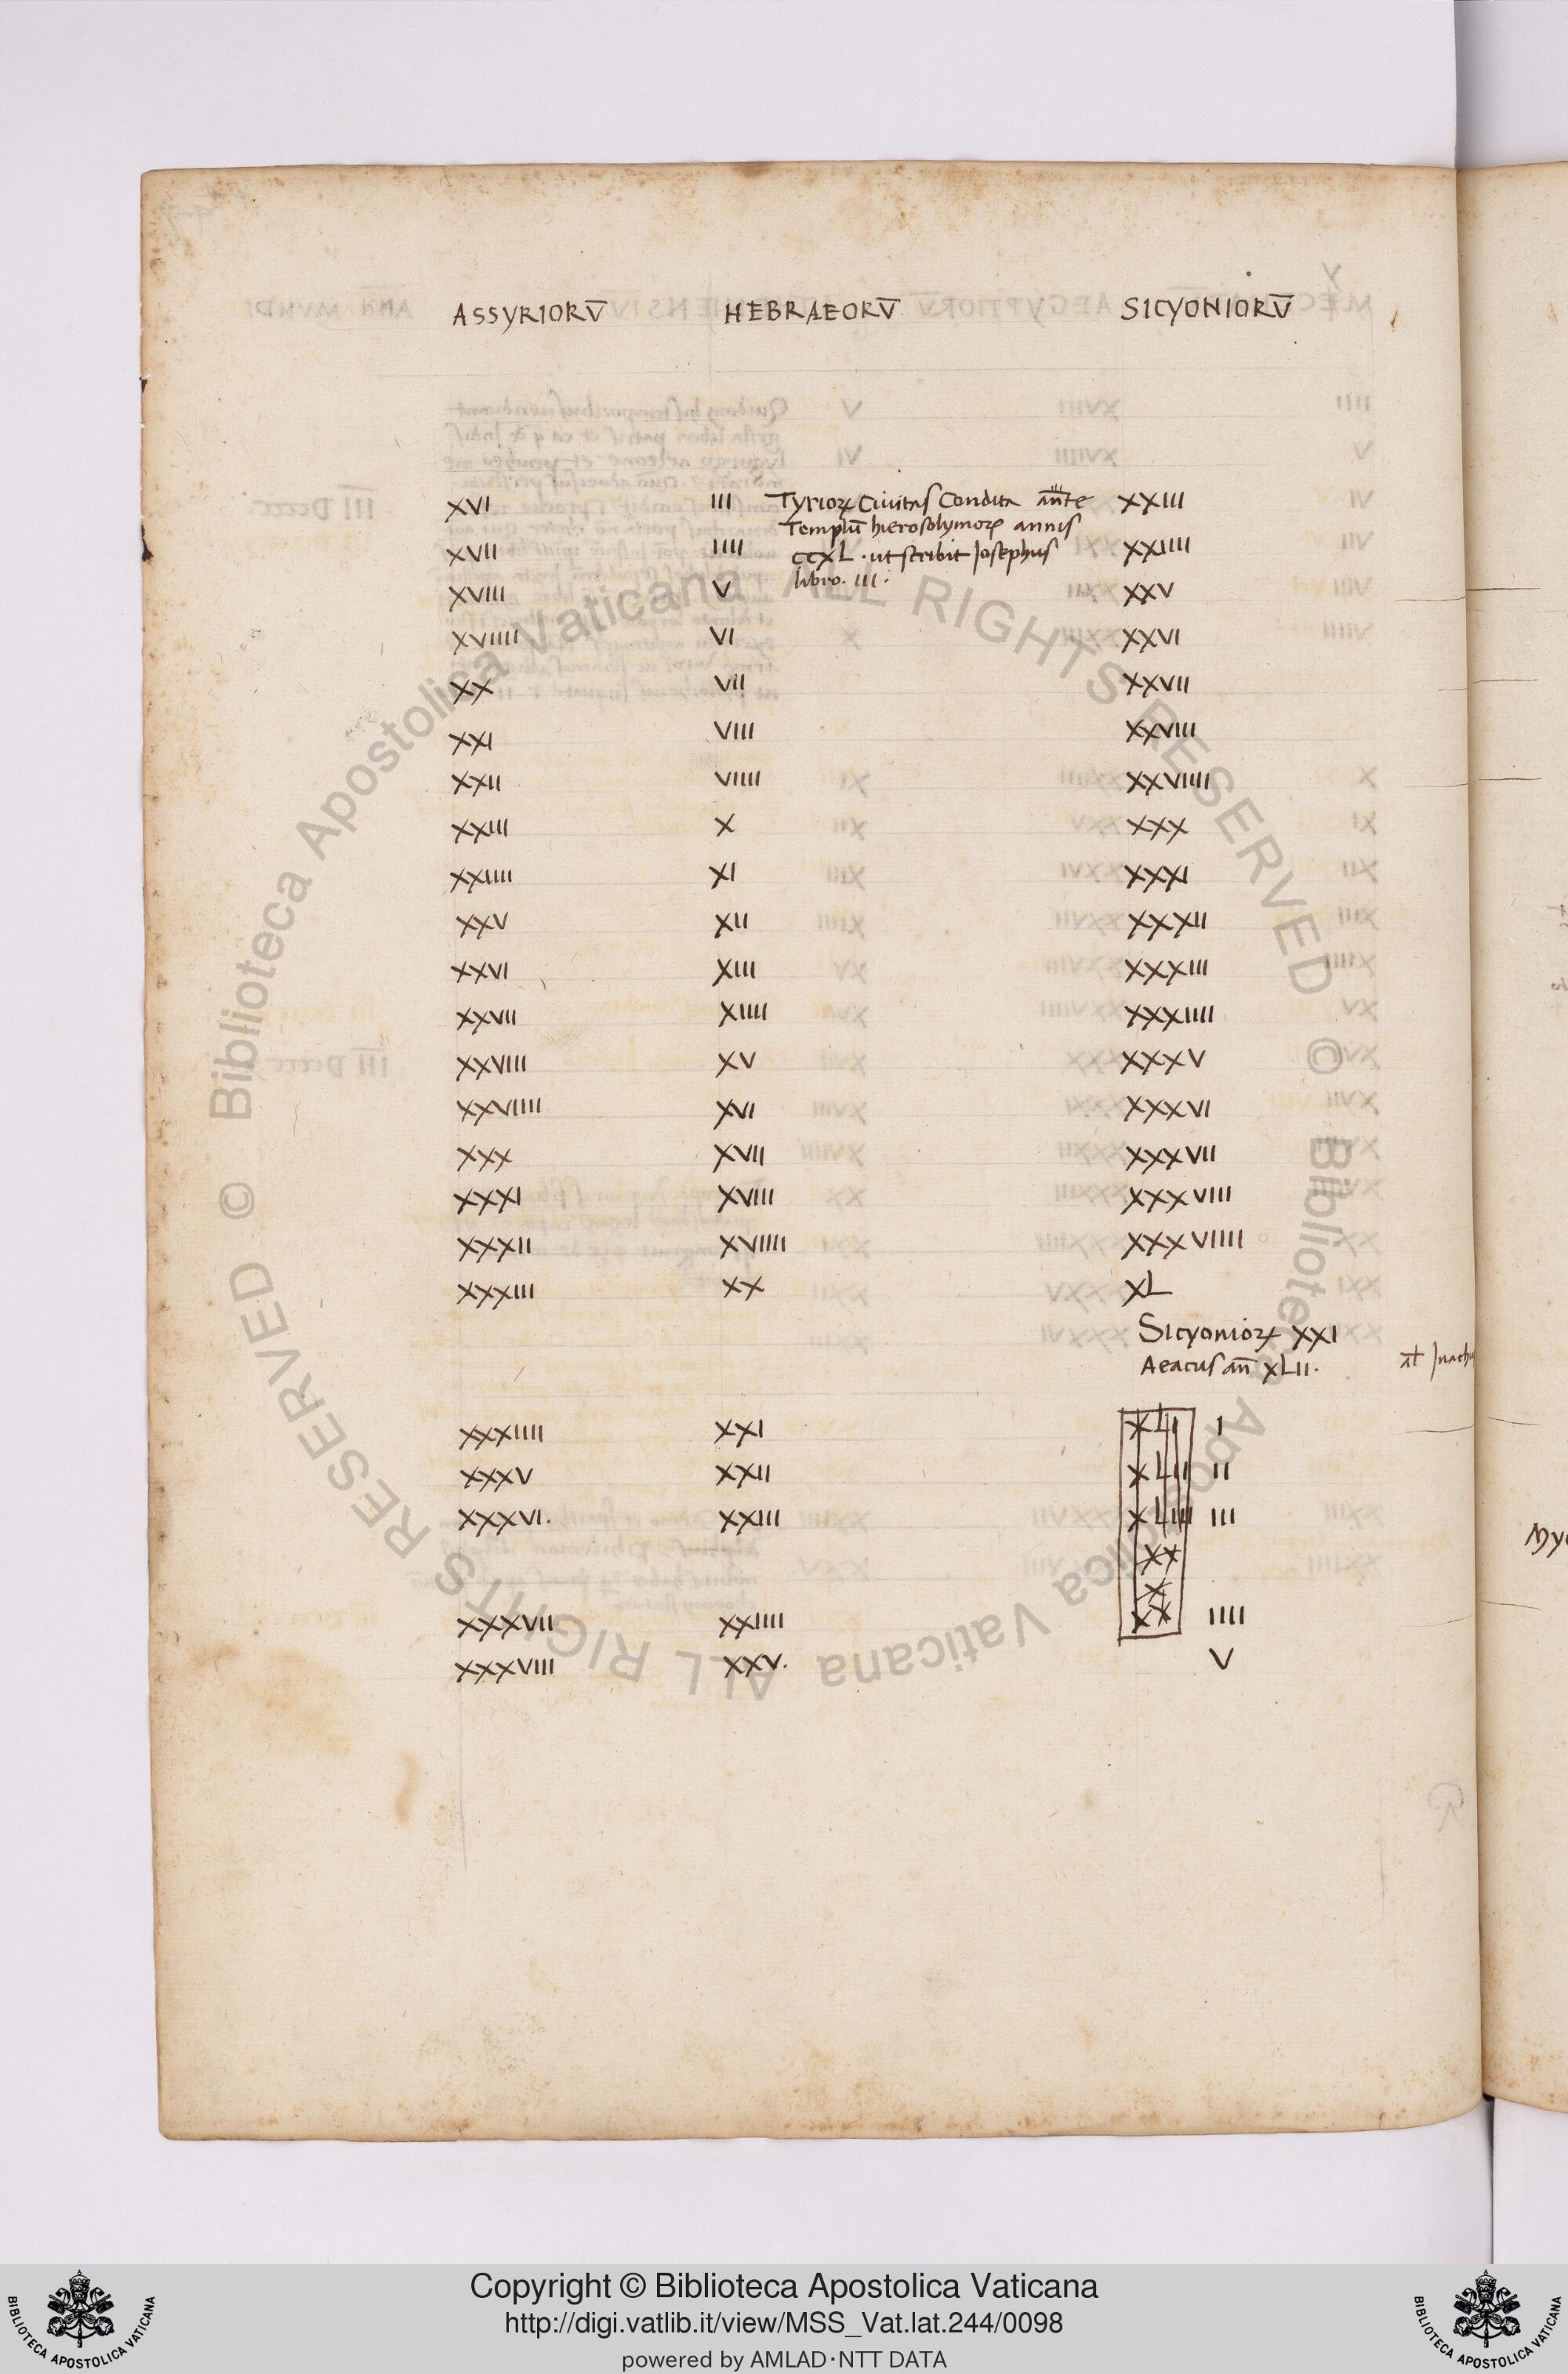 ASSYRIORV̅ HEBRAEORV̅ SICYONIORV̅
XVI III Tyrioꝝ Ciuitas Condita an̅te XXIII
Templu̅ hierosolymoꝝ annis
XVII IIII ccXL · ut scribit Josephus XXIIII
libro. III.
XVIII V XXV
XVIIII VI XXVI
XX VII XXVII
XXI VIII XXVIII
XXII VIIII XXVIIII
XXIII X XXX
XXIIII XI XXXI
XXV XII XXXII
XXVI XIII XXXIII
XXVII XIIII XXXIIII
XXVIII XV XXXV
XXVIIII XVI XXXVI
XXX XVII XXXVII
XXXI XVIII XXXVIII
XXXII XVIIII XXXVIIII
XXXIII XX XL
Sicyonioꝝ XXI
Aeacus an̅ XLII.
XXXIIII XXI XLI I
XXXV XXII XLII II
XXXVI. XXIII XLIII III
XX
X
XXXVII XXIIII XX IIII
XXXVIII XXV. V
© Biblioteca Apostolica Vaticana ALL RIGHTS RESERVED
© Biblioteca Apostolica Vaticana ALL RIGHTS RESERVED
Copyright © Biblioteca Apostolica Vaticana
http://digi.vatlib.it/view/MSS_Vat.lat.244/0098
powered by AMLAD·NTT DATA
BIBLIOTECA APOSTOLICA VATICANA
BIBLIOTECA APOSTOLICA VATICANA